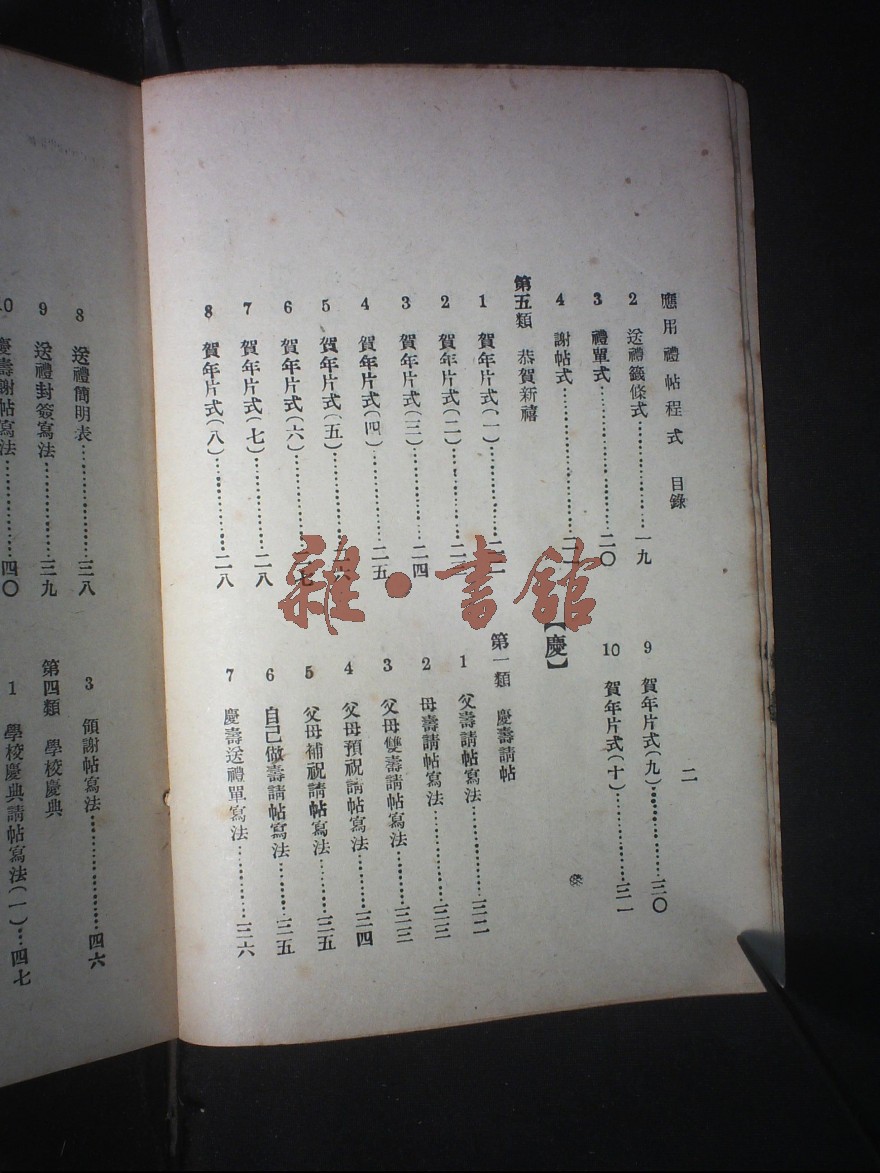 應用禮帖程式 目錄 二
2 送禮籤條式………………一九
3 禮單式………………二〇
4 謝帖式………………
第五類 恭賀新禧
1 賀年片式(一)…………
2 賀年片式(二)…………
3 賀年片式(三)…………二四
4 賀年片式(四)…………二五
5 賀年片式(五)…………
6 賀年片式(六)…………
7 賀年片式(七)…………二八
8 賀年片式(八)…………二八
9 賀年片式(九)…………三〇
10 賀年片式(十)…………三一
【慶】
第一類 慶壽請帖
1 父壽請帖寫法…………三二
2 母壽請帖寫法…………三三
3 父母雙壽請帖寫法………三三
4 父母預祝請帖寫法………三四
5 父母補祝請帖寫法………三五
6 自己做壽請帖寫法………三五
7 慶壽送禮單寫法…………三六
8 送禮簡明表………………三八
9 送禮封簽寫法……………三九
10 慶壽謝帖寫法……………四〇
3 領謝帖寫法………………四六
第四類 學校慶典
1 學校慶典請帖寫法(一)…四七
雜·書館